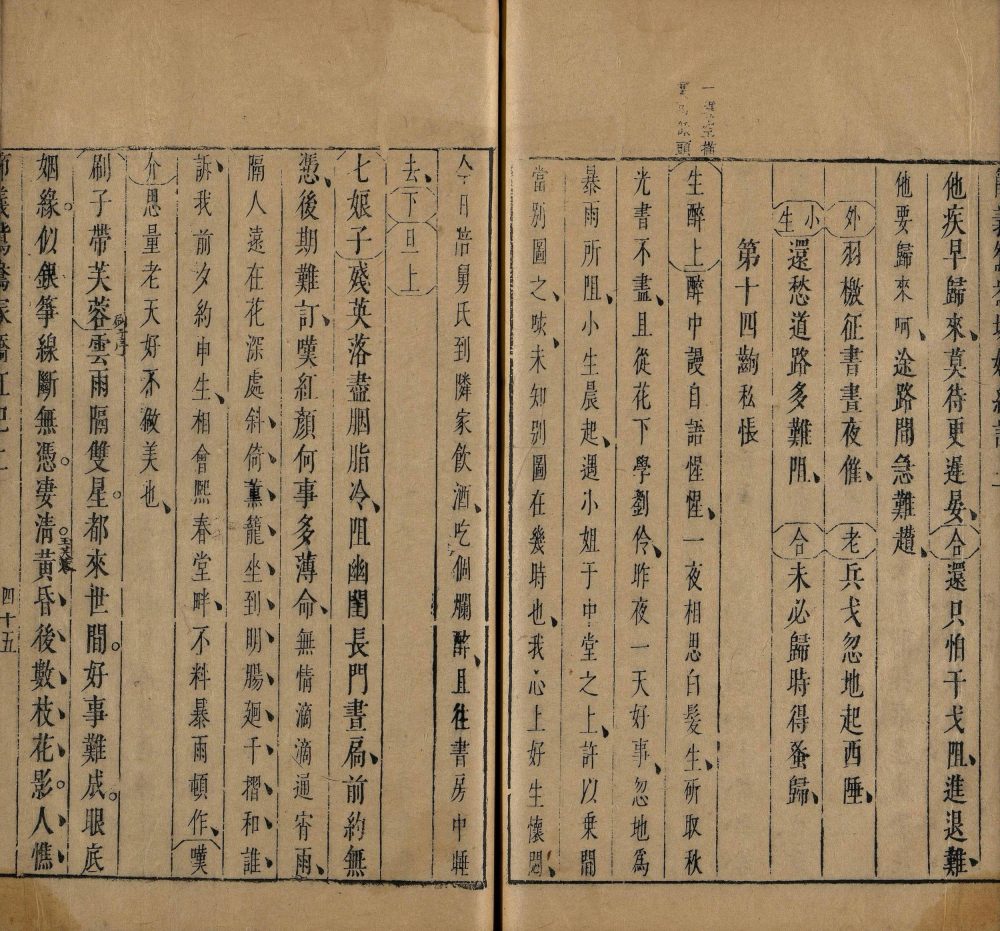 他疾早歸來、莫待更遲晏、合還只怕干戈阻、進退難、
他要歸來呵、途路間急難趲、
外羽檄征書晝夜催、老兵戈忽地起西陲、
小生還愁道路多難阻、合未必歸時得蚤歸、
第十四齣私悵
生醉上醉中謾自語惺惺、一夜相思白髮生、斫取秋
光書不盡、且從花下學劉伶、昨夜一天好事、忽地為
暴雨所阻、小生晨起、遇小姐于中堂之上、許以乗間
當別圖之、咏未知別圖在幾時也、我心上好生懷悶、
今日陪舅氏到隣家飲酒、吃個爛醉、且往書房中睡
去、下旦上
七娘子殘英落盡胭脂冷、阻幽閨長門晝扃、前約無
憑、後期難訂、嘆紅顏何事多薄命、無情滴滴通宵雨、
隔人遠在花深處斜、倚薰籠坐到明腸廻千摺和誰
訴、我前夕約申生、相會熙春堂畔、不料暴雨頓作、嘆
介思量老天好不做美也、
刷子帶芙蓉雲雨隔雙星。都來世間。好事難成。眼底
姻緣。似銀箏線斷無憑。凄清黃昏、後數枝花影。人憔
四十五